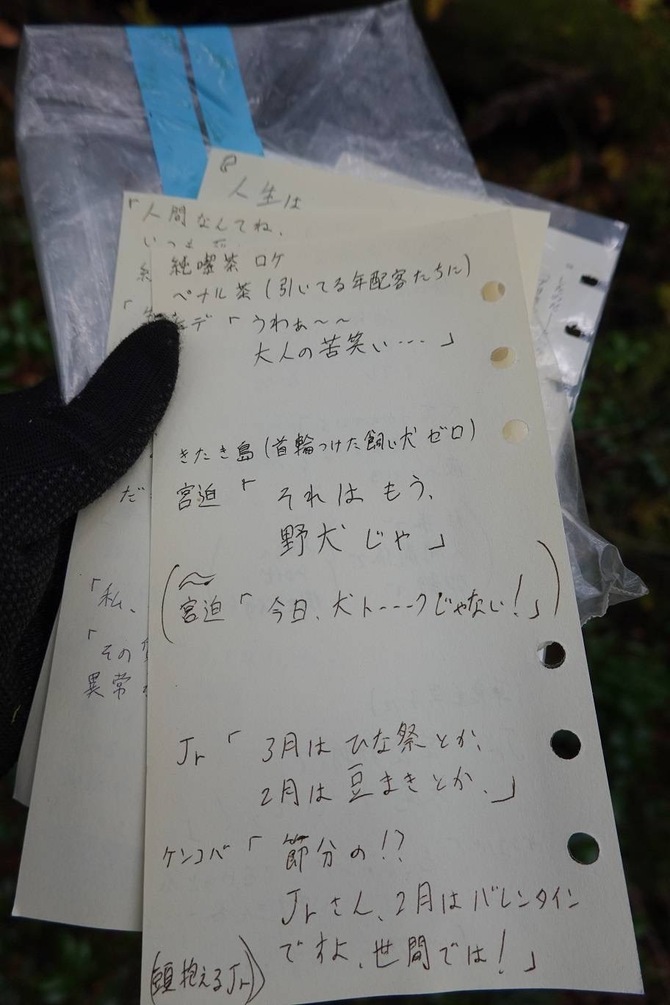 人生は
「人間なんてね、
純喫茶 ロケ
ペナル茶(引いてる年配客たちに)
デ「うわぁ〜〜
大人の苦笑い…」
きたき島(首輪つけた飼い犬ゼロ)
宮迫「それはもう、
野犬じゃ」
だ
(宮迫「今日、犬トーーークじゃない!」)
「私、
「その
異常
Jr「3月はひな祭とか、
2月は豆まきとか、」
ケンコバ「節分の!?
Jrさん、2月はバレンタイン
ですよ、世間では!」
(頭抱えるJr)